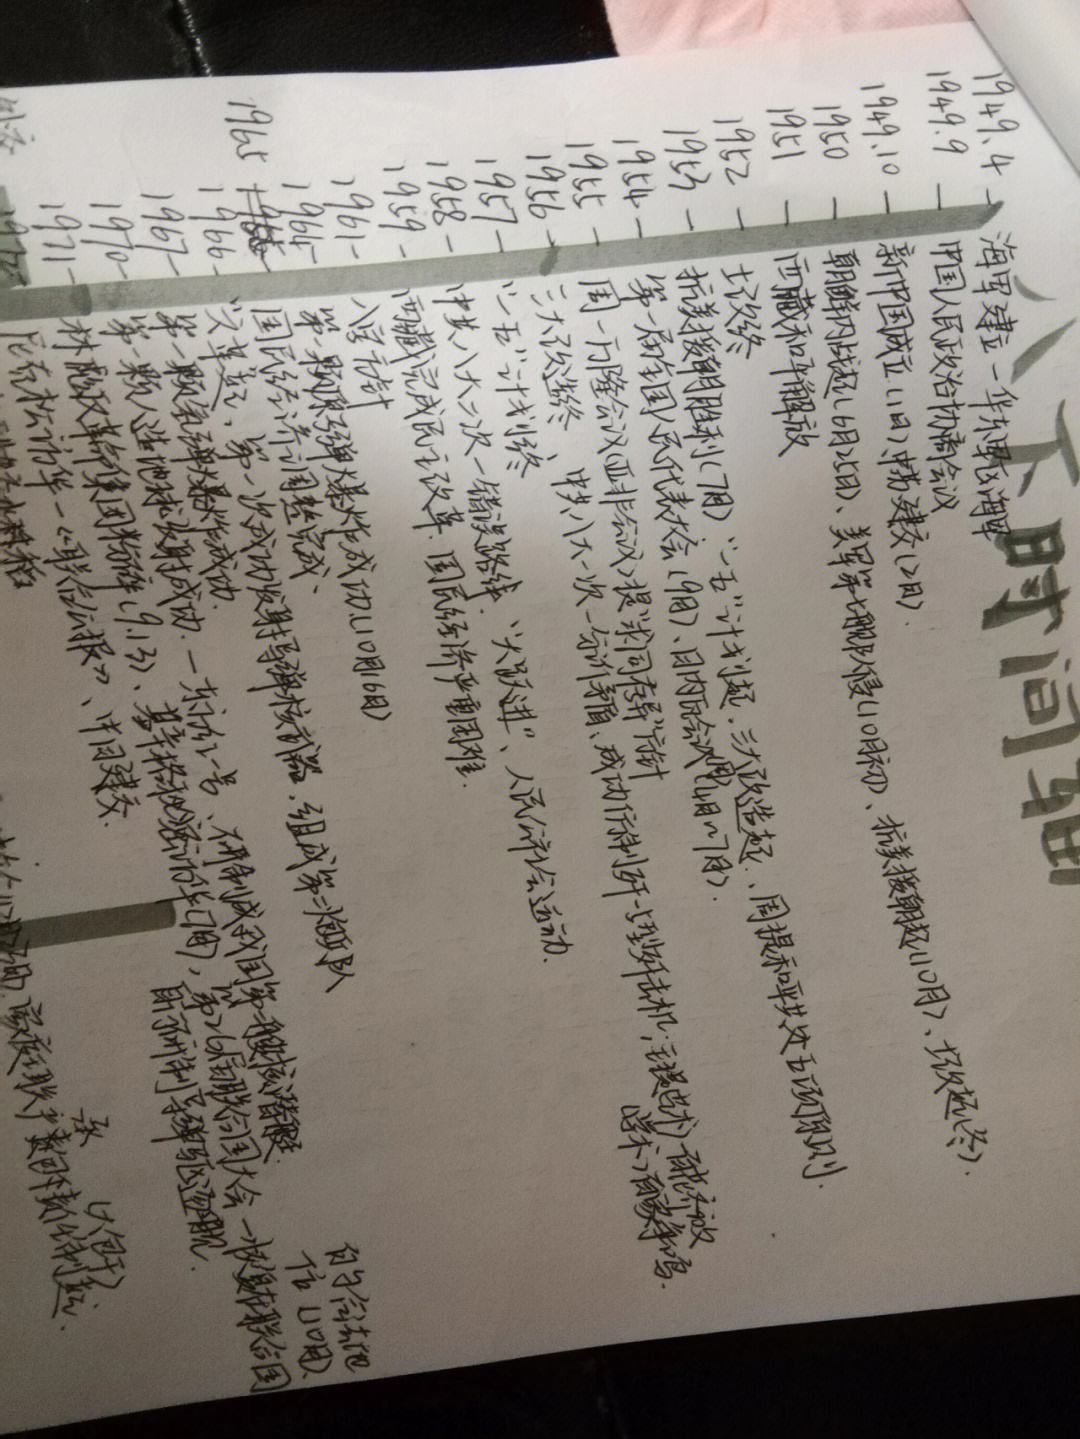 八下时间轴
1949.4 - 海军建立 - 华东军区海军
1949.9 - 中国人民政治协商会议
1949.10 - 新中国成立(1日)中苏建交(2日).
1950 - 朝鲜内战起(6月25日)、美军等朝侵(10月初)、抗美援朝起(10月)、土改起(冬).
1951 - 西藏和平解放
1952 - 土改终
1953 - 抗美援朝胜利(7月)、"一五"计划起、三大改造起、周提和平共处五项原则.
1954 - 第一届全国人民代表大会(9月)、日内瓦会议(4月~7月).
1955 - 周-万隆会议(亚非会议)提"求同存异"方针
1956 - 三大改造终 中共八大一次-分析矛盾、成功仿制歼-5型歼击机,主提艺术,百花齐放 学术,百家争鸣.
1957 - "一五"计划终
1958 - 中共八大二次-错误路线、"大跃进"、人民公社会运动.
1959 - 西藏完成民主改革. 国民经济严重困难.
1961 - 八字方针
1964 - 第一颗原子弹爆炸成功(10月16日)
1965 国民经济调整完成、
1966 - "文革"起、第一次成功发射导弹核武器. 组成第二炮部队
1967 - 第一颗氢弹爆炸成功.
1970 - 第一颗人造地球卫星发射成功. - 东方红一号、研制成我国第一艘核潜艇
1971 - 林彪反革命集团粉碎(9.13)、基辛格秘密访华(7月),第26届联合国大会-恢复我联合国 合法席位(10月)
外交 1972 尼克松访华-《联合公报》、中日建交.